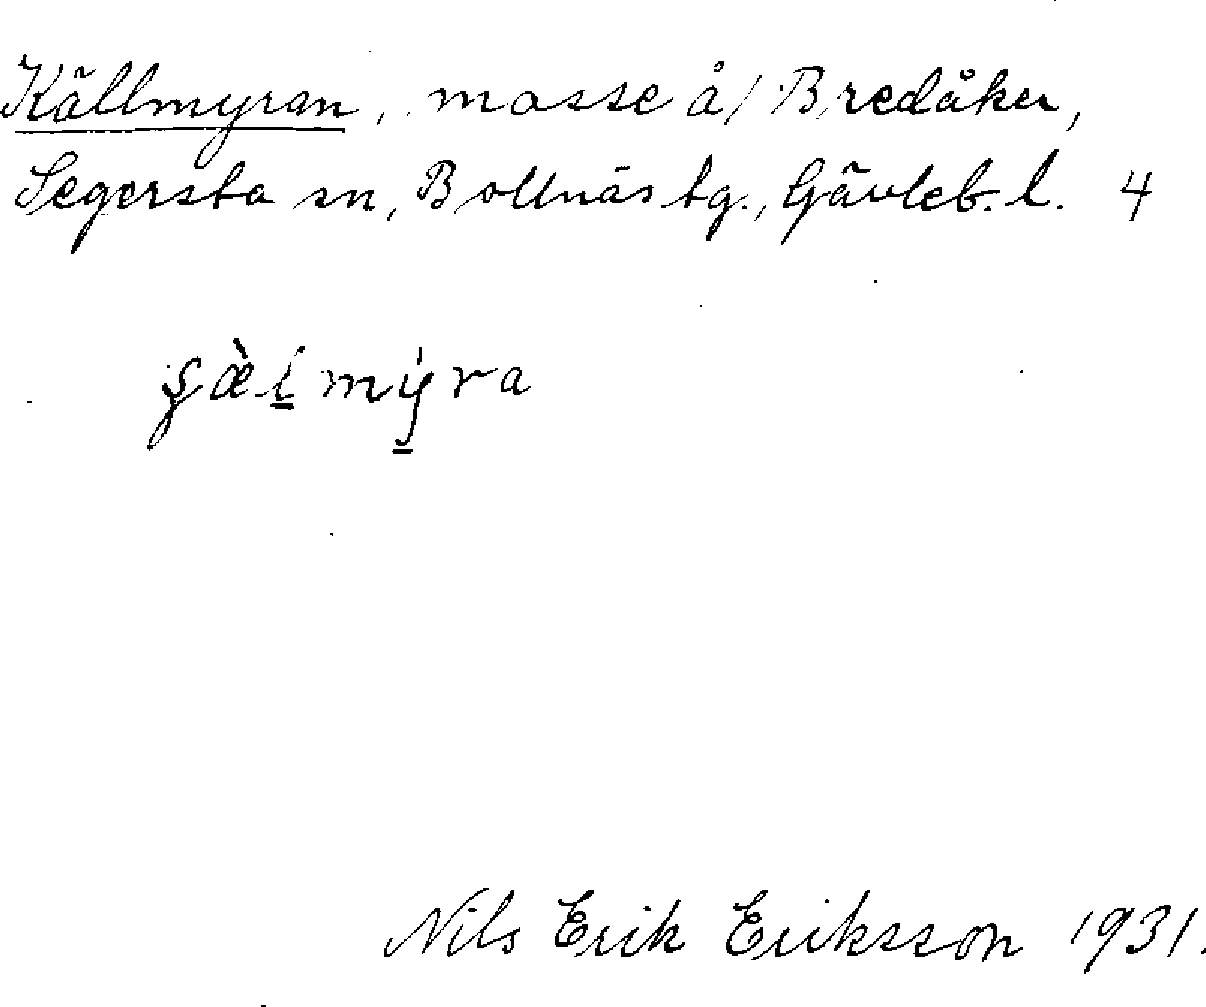 Källmyran, mosse å/ Bredåker,
Segersta sn, Bollnäs tg., Gävleb. l. 4
Nils Erik Eriksson 1931.